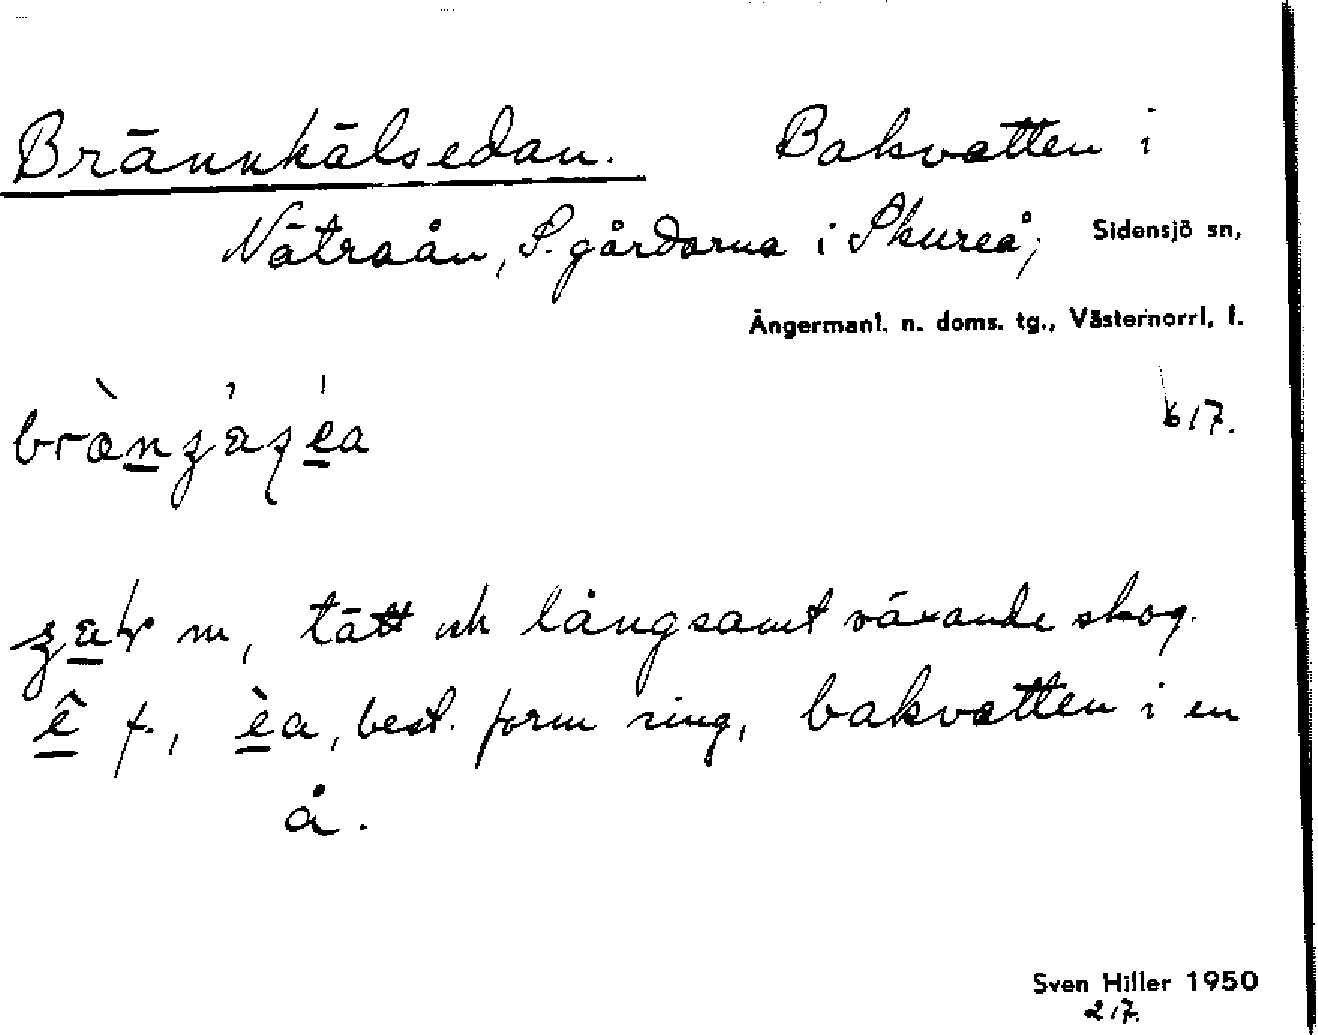 Brännkälsedan. Bakvatten i
Nätraån, S. gårdarna i Skureå, Sidensjö sn,
Ångermanl. n. doms. tg., Västernorrl. l.
617.
m, tätt och långsamt växande skog.
ê f., èa, best. form ring, bakvatten i en
å.
Sven Hiller 1950
217.